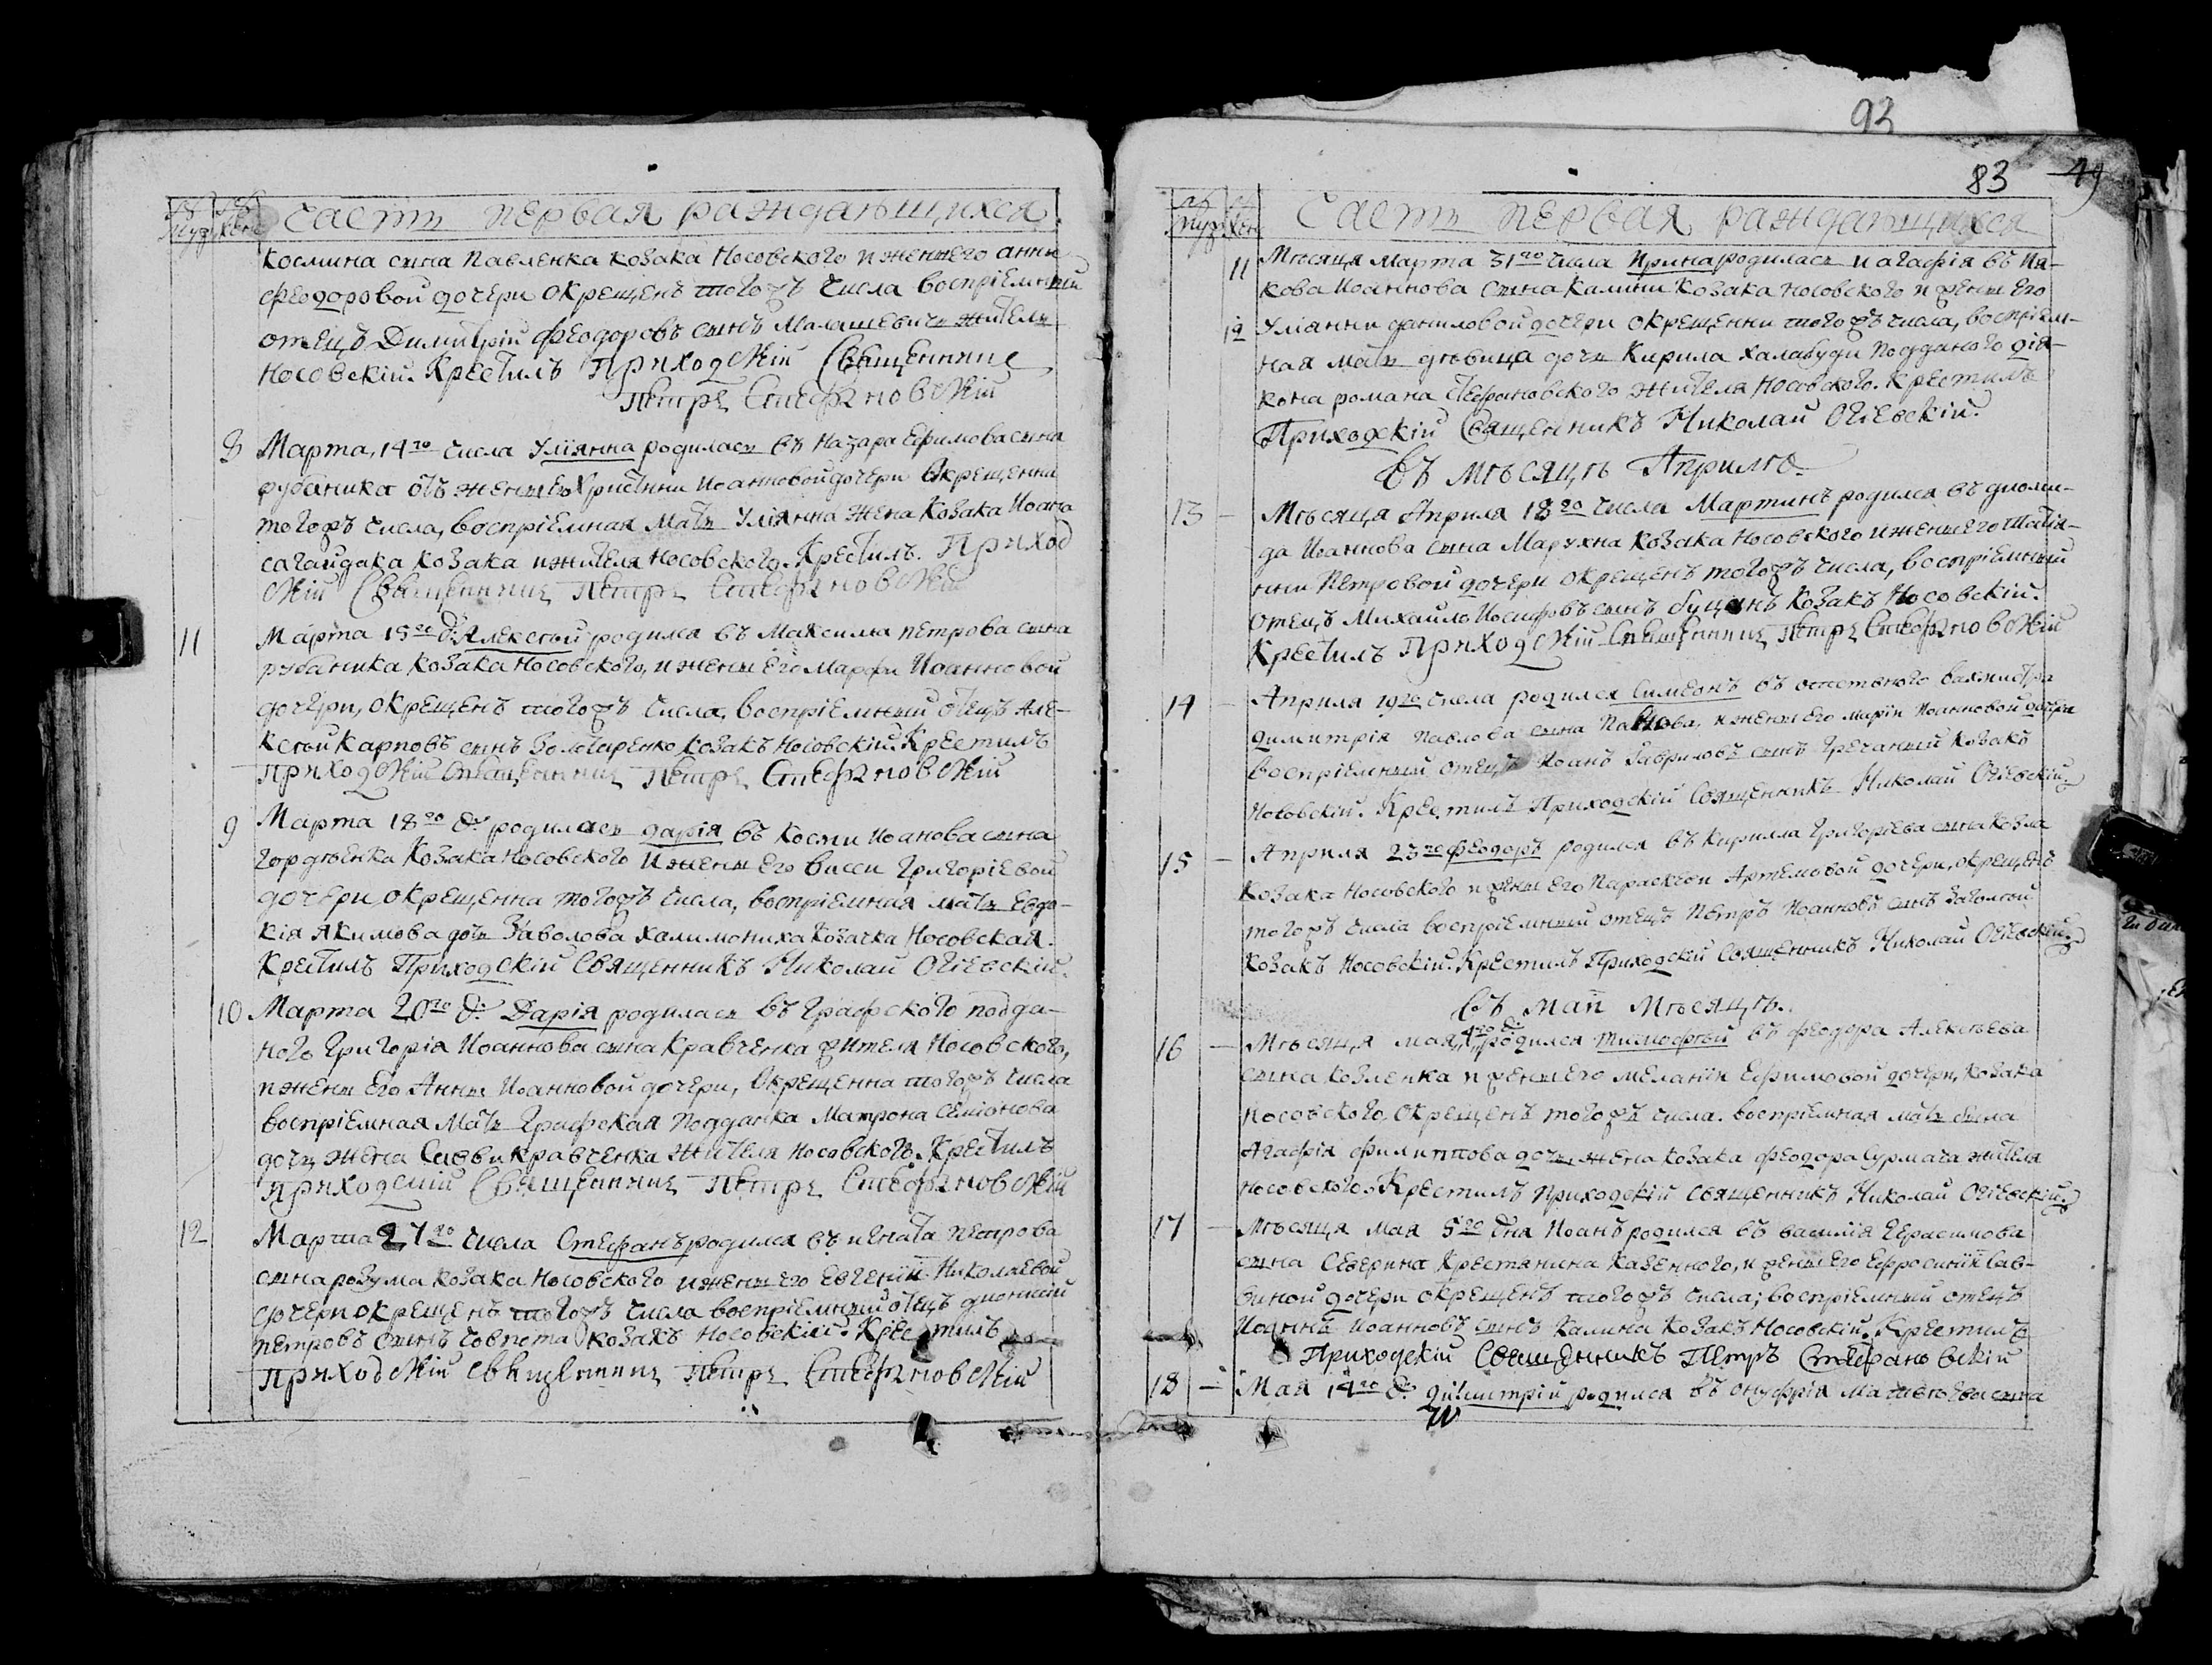 Часть первая раждающихся
Космина сына Павленка козака Носовского и жены его Анны
Феодоровой дочери окрещенъ тогожъ числа воспріемный
отецъ Димитрій Феодоровъ сынъ Малашевичъ житель
Носовскій. Крестилъ Приходскій Священникъ
Петръ Стефановскій
8 Марта, 14го числа Уліянна родилась въ Назара Ефимова сына
рубаника отъ жены его Христины Иоанновой дочери окрещенна
тогожъ числа, воспріемная мать Уліянна жена козака Иоана
сагайдака козака и жителя Носовского. Крестилъ. Приход
скій Священникъ Петръ Стефановскій
11 Марта 15го д. Алексѣй родился въ Максима Петрова сына
рубаника козака Носовского, и жены его Марфи Иоанновой
дочери, окрещенъ тогожъ числа, воспріемный отецъ Але-
ксѣй Карповъ сынъ Золотаренко козакъ Носовскій. Крестилъ
приходскій Священникъ Петръ Стефановскій
9 Марта 18го д. родилась дарія въ Косми Иоанова сына
гордѣенка козака Носовского и жены его Васси Григоріевой
дочери, окрещенна тогожъ числа, воспріемная мать Евдо-
кія Якимова дочь Заволова халимониха козачка Носовская.
Крестилъ Приходскій Священникъ Николай Огіевскій.
10 Марта 20го д. Дарія родилась въ Графского подда-
ного Григорія Иоаннова сына Кравченка жителя Носовского,
и жены его Анны Иоанновой дочери, окрещенна тогожъ числа
воспріемная мать Графская подданка Матрона Семіонова
дочь жена Савви Кравченка жителя Носовского. Крестилъ
приходскій Священникъ Петръ Стефановскій
12 Марта 27го числа Стефанъ родился въ игната Петрова
сына розума козака Носовского и жены его Евгеніи Николаевой
дочери окрещенъ тогожъ числа воспріемный отецъ дионисій
петровъ сынъ козакъ Носовскій. Крестилъ
приходскій Священникъ Петръ Стефановскій
93
83 49
Часть первая раждающихся
11 Мѣсяця Марта 31го числа Ирина родилась и агафія въ Иа-
кова Иоаннова сына Калини козака Носовского и жены его
12 Уліянни даниловой дочери окрещенни тогожъ числа, воспріем-
ная мать дѣвица дочь Кирила халабуди подданого дія-
кона романа Стефановского жителя Носовского. Крестилъ
Приходскій Священникъ Николай Огіевскій.
Въ Мѣсяцѣ Априлѣ
13 – Мѣсяця Априля 18го числа Мартинъ родился въ диоми-
да Иоаннова сына Марухна козака Носовского и жены его Татія-
нни Петровой дочери окрещенъ тогожъ числа, воспріемный
отецъ Михайло Иосифовъ сынъ буцанъ козакъ Носовскій.
Крестилъ Приходскій Священникъ Петръ Стефановскій
14 – Априля 19го числа родился Симеонъ въ вахмистра
димитрія павлова сына и жены его маріи Иоанновой дочери
воспріемный отецъ Иоанъ Гавриловъ сынъ Гречаный козакъ
Носовскій. Крестилъ Приходскій Священникъ Николай Огіевскій.
15 – Априля 23го Феодоръ родился въ Кирилла Григоріева сына козла
козака Носовского и жены его Параскіеи Артемовой дочери, окрещенъ
тогожъ числа воспріемный отецъ Петръ Иоанновъ сынъ
козакъ Носовскій. Крестилъ Приходскій Священникъ Николай Огіевскій.
Въ маіи Мѣсяцѣ.
16 – Мѣсяця мая, 4го д. родился тимофѣй въ Феодора Алексѣева
сына Козленка и жены его меланіи Ефимовой дочери, козака
Носовского, окрещенъ тогожъ числа. воспріемная мать была
Агафія филиппова дочь, жена козака Феодора Сурмача жителя
Носовского. Крестилъ приходскій Священникъ Николай Огіевскій.
17 – Мѣсяця мая 5го дня Иоанъ родился въ василія Герасимова
сына Северина крестянина казенного, и жены его Ефросиніи Сав-
виной дочери окрещенъ тогожъ числа; воспріемный отецъ
Иоаннъ Иоанновъ сынъ Калина козакъ Носовскій. Крестилъ
Приходскій Священникъ Петръ Стефановскій
18 – Мая 14го д. димитрій родился въ онуфрія Матвѣева сына